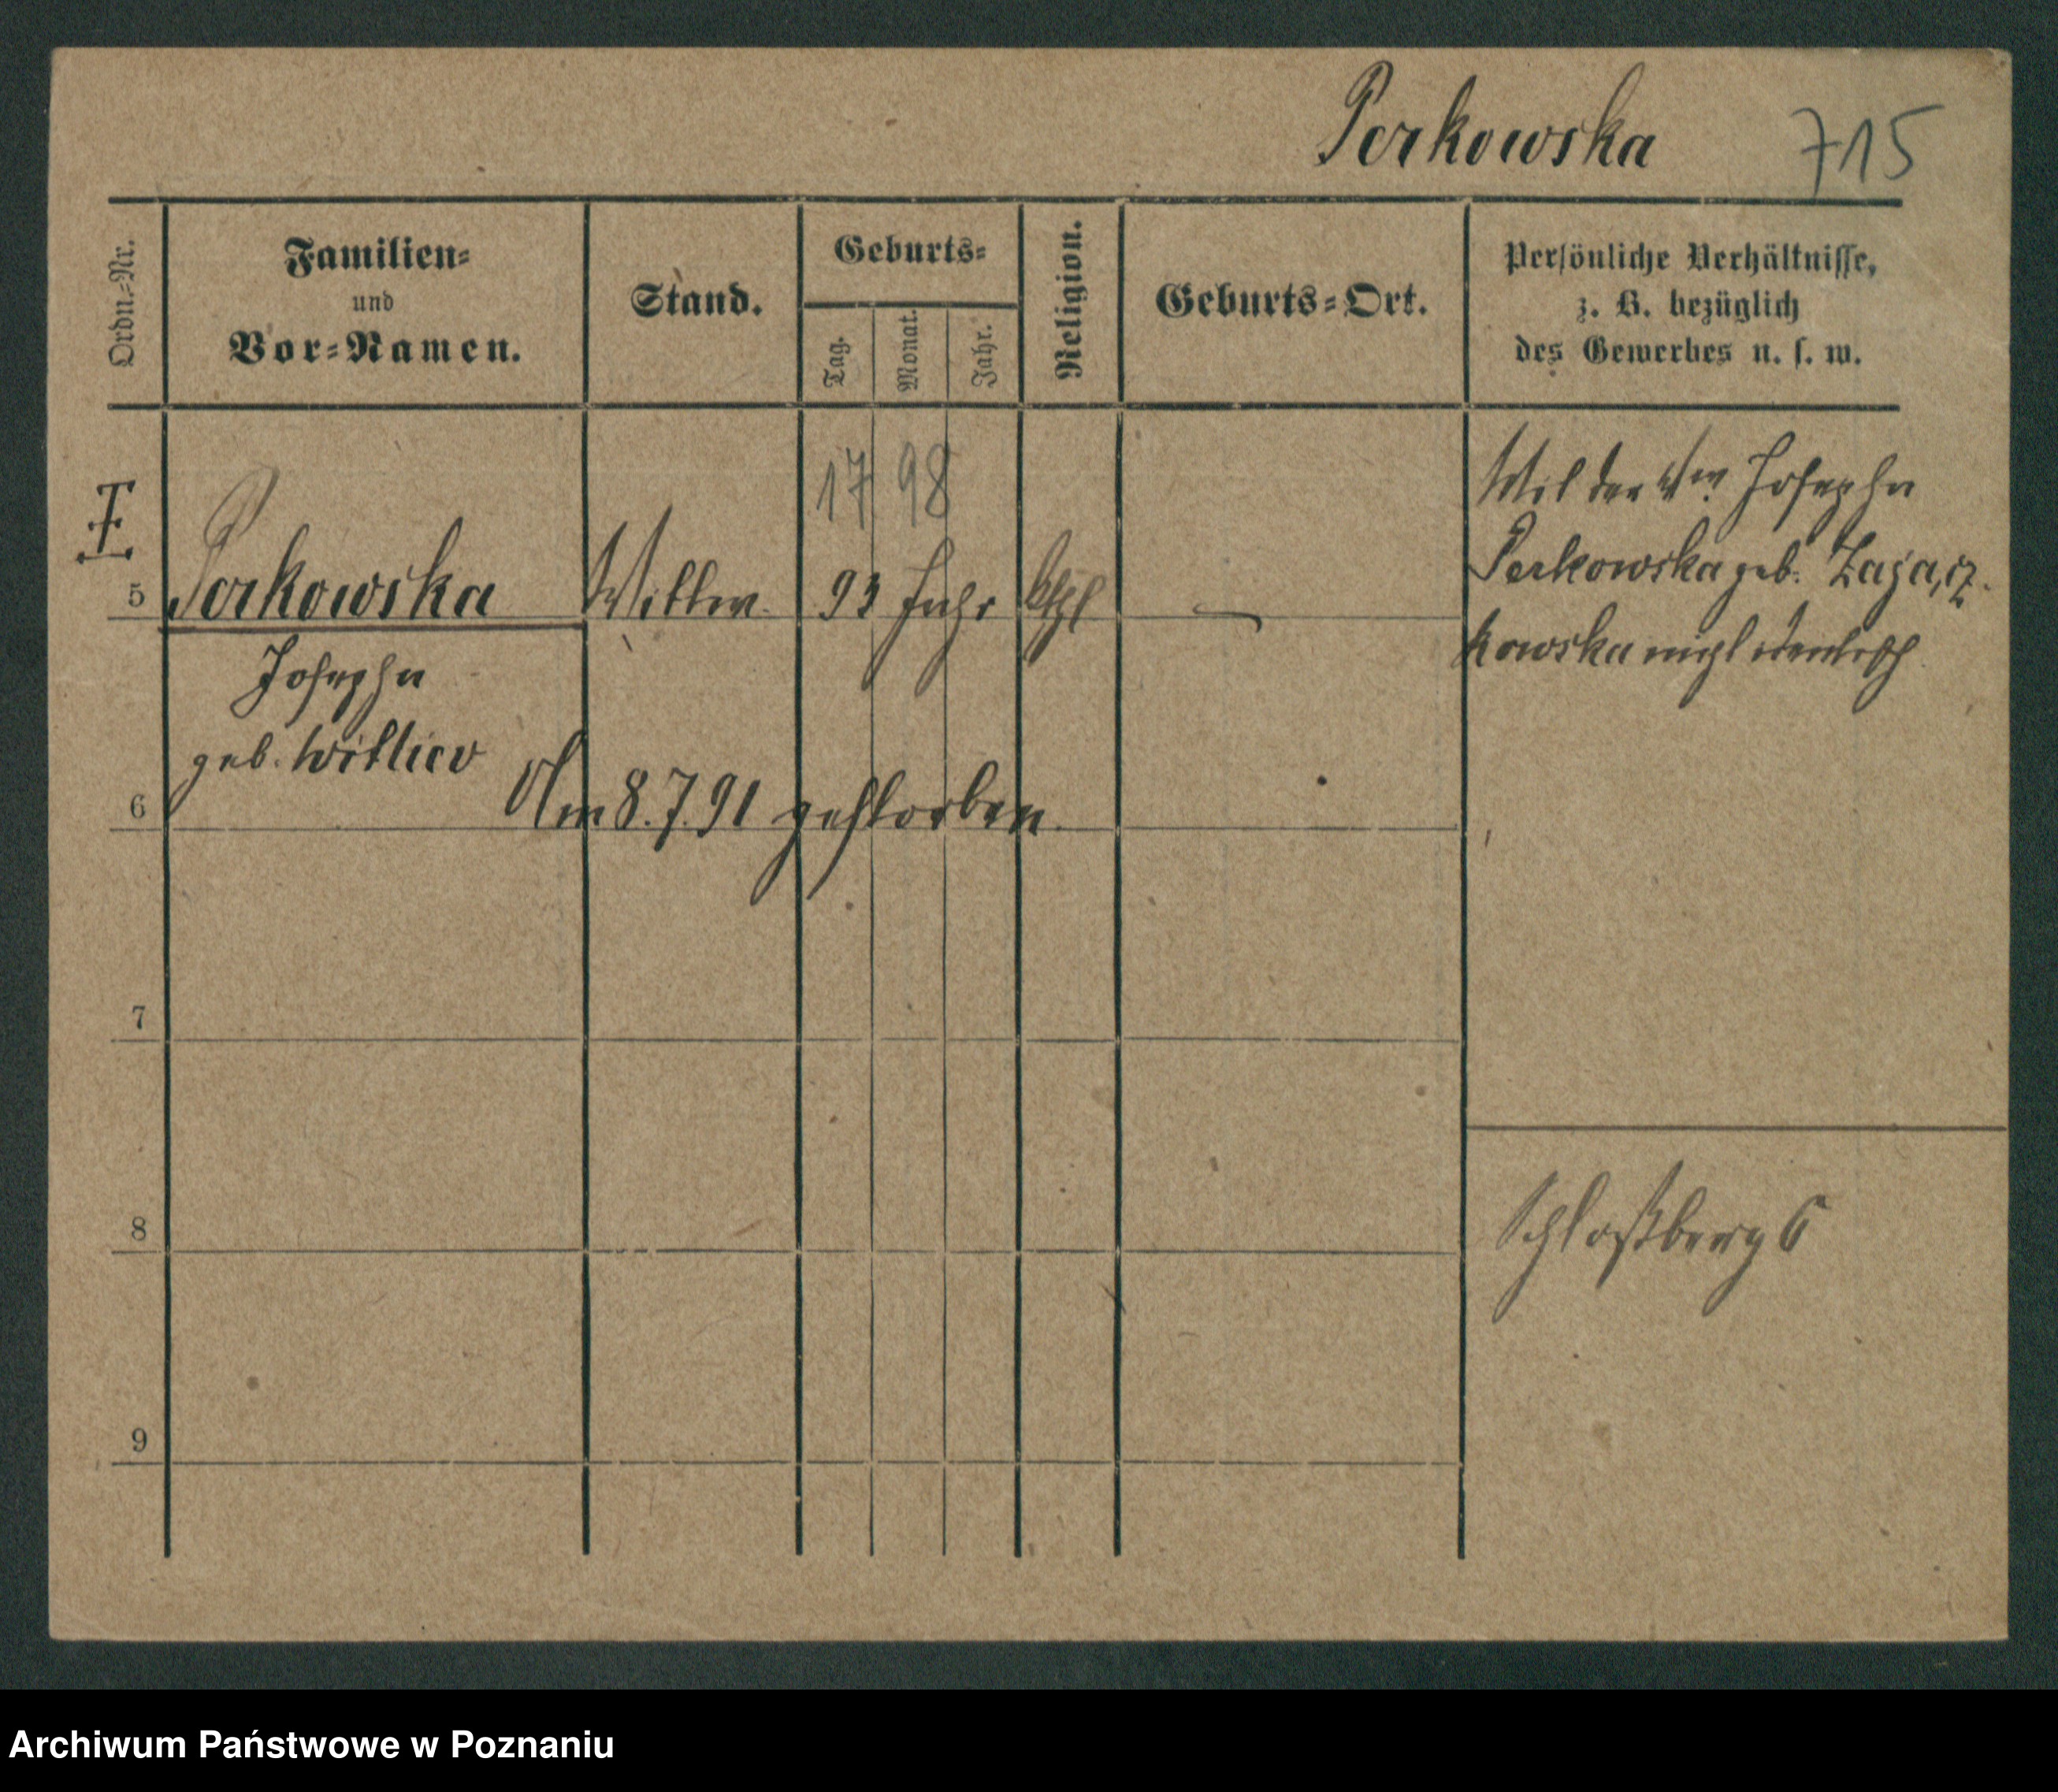 Perkowska 715
Ordn.-Nr.
Familien-
und
Vor-Namen.
Stand.
Geburts-
Tag.
Monat.
Jahr.
Religion.
Geburts-Ort.
Persönliche Verhältnisse,
z. B. bezüglich
des Gewerbes u. s. w.
17 98
Mit der Ww Josepha
Perkowska geb. Zającz-
kowska nicht identisch
5 Perkowska Wittwe. 93 Jahr kthl —
Josepha
geb.
6 Am 8.7.91 gestorben.
7
8
Schloßberg 6
9
Archiwum Państwowe w Poznaniu